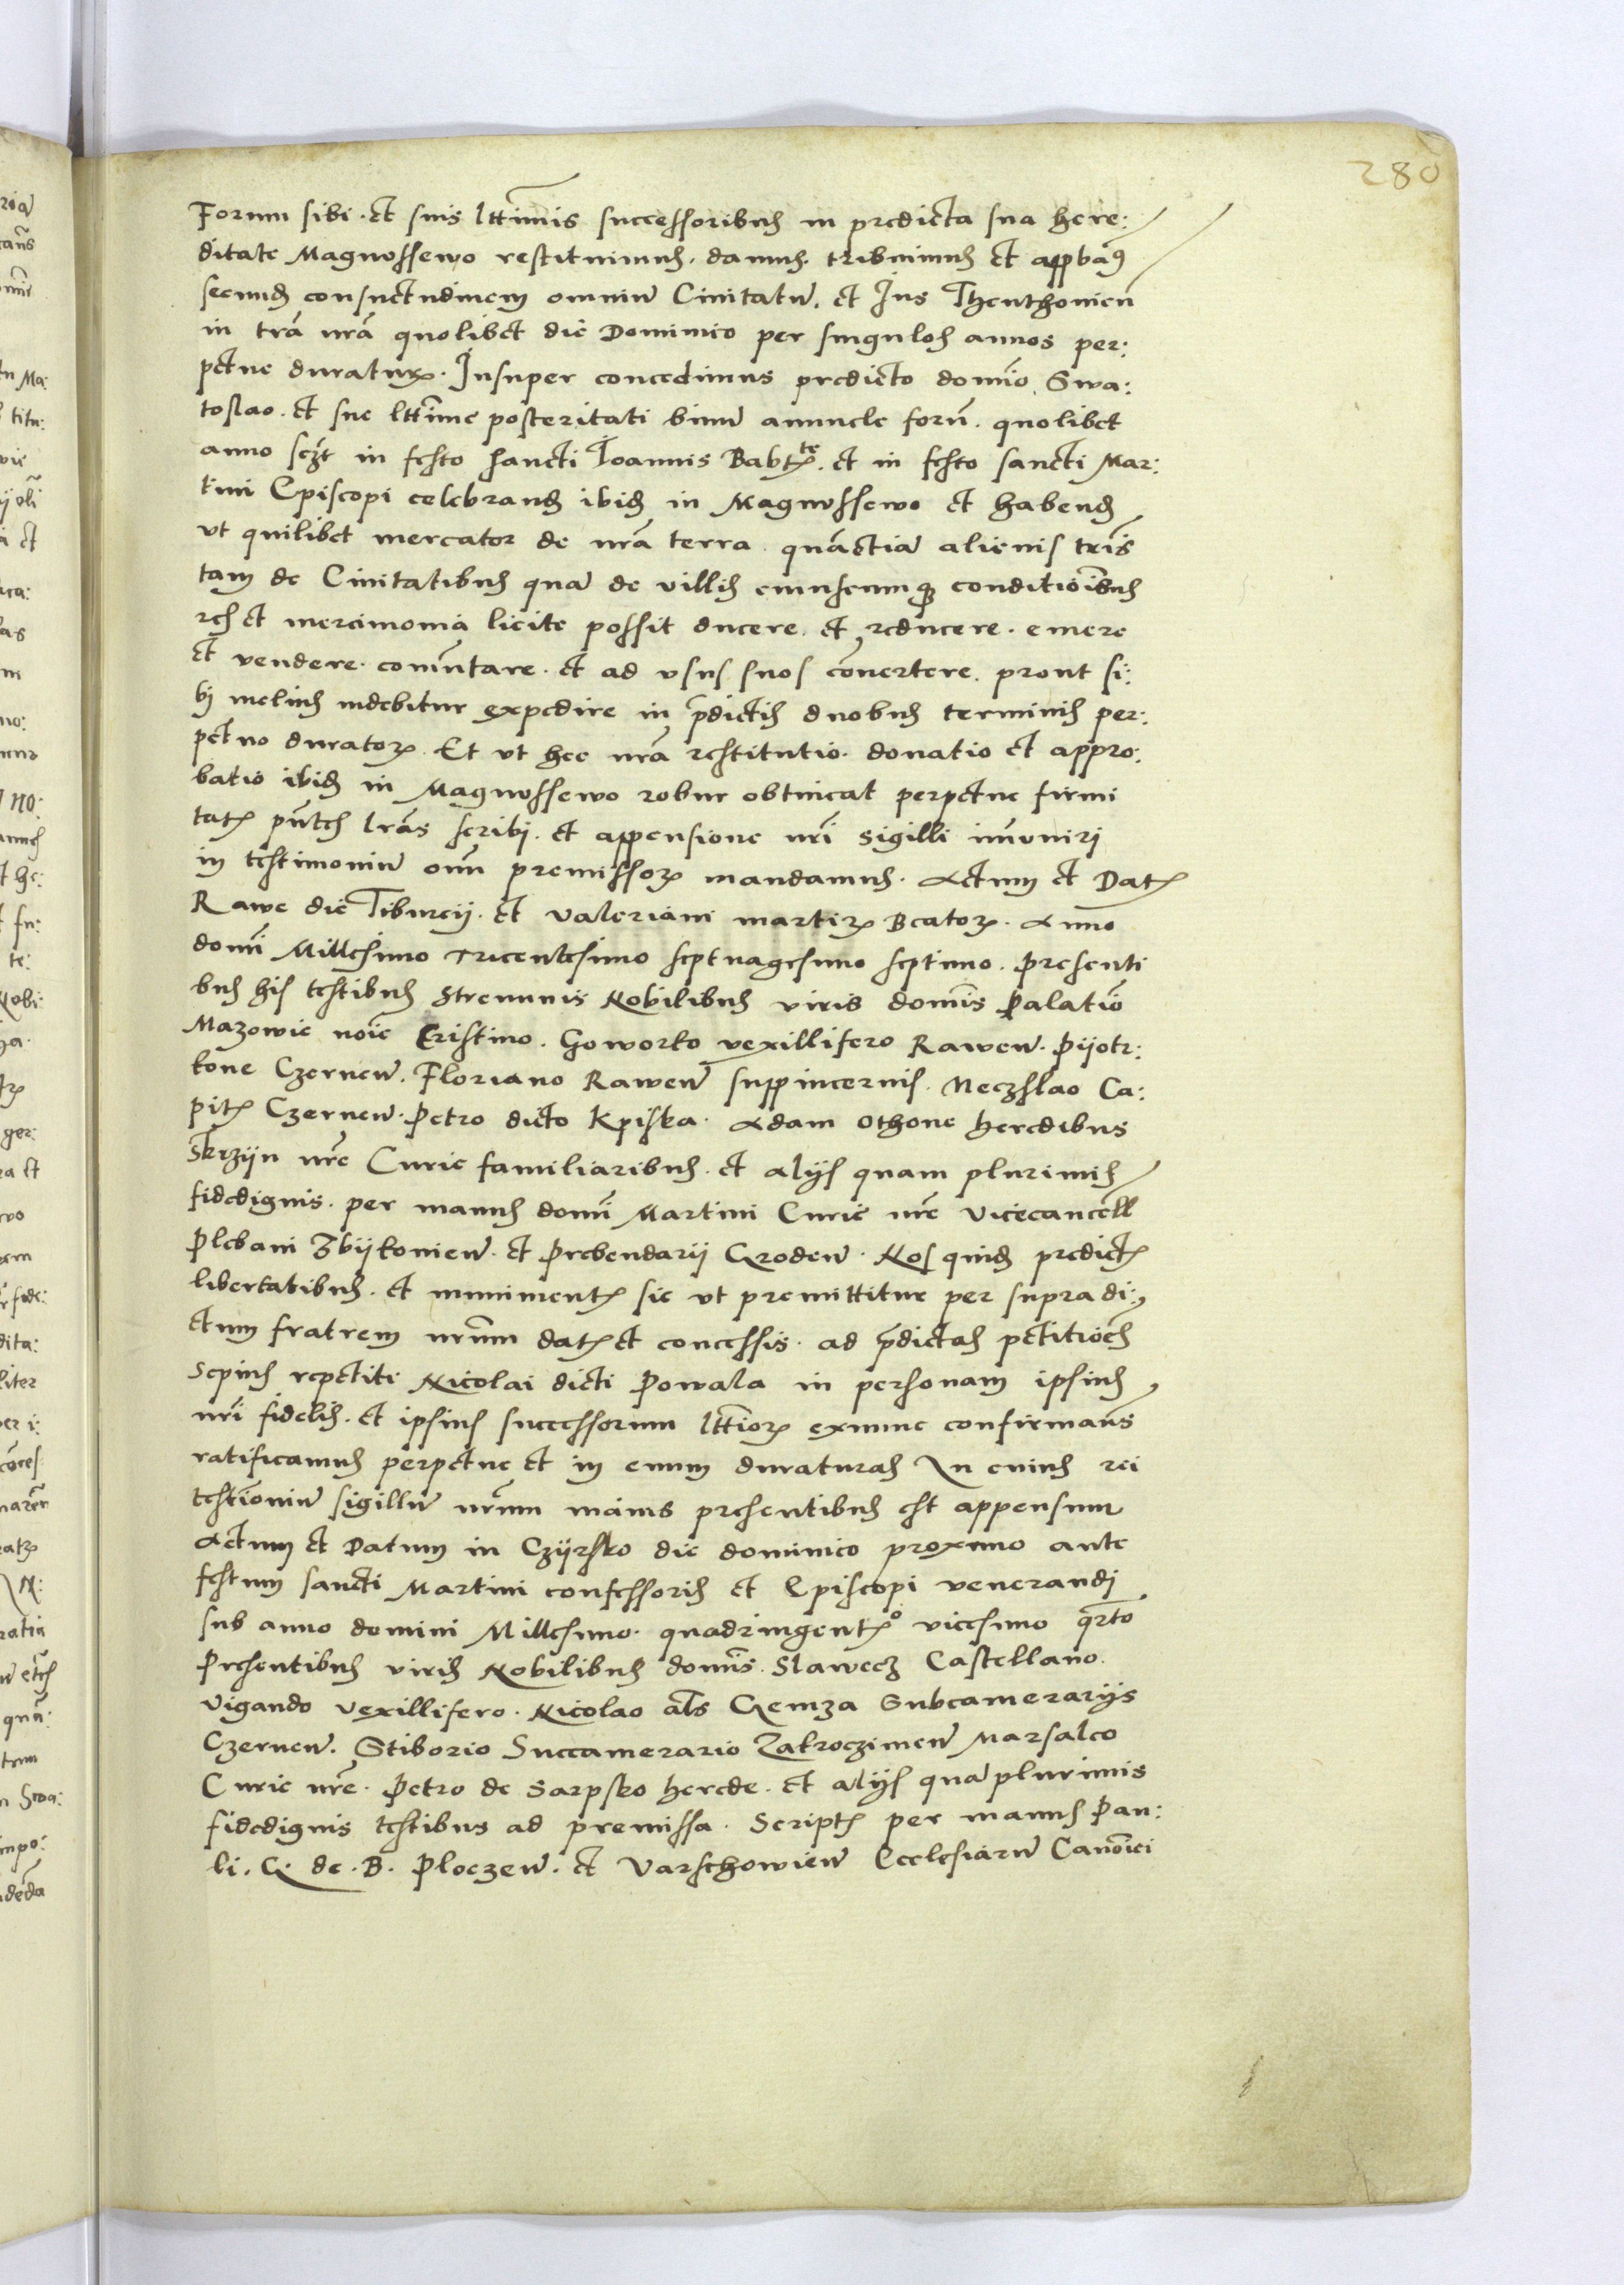 280
Forum sibi. et suis lttimis successoribus in predicta sua here:
ditate Magnussewo restituimus. damus. tribuimus et appbam9
secund consuetudinem omniu Civitatu. et Jus Theuthonicu
in tra nra quolibet die Dominico per singulos annos per:
petue duratur. Insuper concedimus predicto domino Swa:
toslao. et sue lttime posteritati binu annuale foru. quolibet
anno sczt in festo sancti Joannis Babtte. et in festo sancti Mar:
tini Episcopi celebrand ibid in Magnussewo et habend
ut quilibet mercator de nra terra. quaetia alienis tris
tam de Civitatibus qua de villis cuiuscumq conditioibus
res et mercimonia licite possit ducere. et reducere. emere
et vendere. comutare. et ad usus suos covertere. prout si:
bi melius videbitur expedire in pdictis duobus terminis per:
petuo durator. Et ut hec nra restitutio. donatio et appro:
batio ibid in Magnussewo robur obtineat perpetue firmi
tat pntes lras scribi. et appensione nri sigilli imuniri
in testimoniu oim premissor mandamus. Actum et Dat
Rawe die Tiburcij. et Valeriani martir Beator. Anno
domi Millesimo Tricentesimo septuagesimo septimo. Presenti
bus his testibus Strennuis Nobilibus viris dominis Palatio
Mazowie noie Cristino. Goworko vexillifero Rawen. Pijotr:
kone Czernen. Floriano Rawen suppincernis. Neczslao Ca:
pit Czernen. Petro dicto Kpiska. Adam Othone heredibus
Skrzyn nre Curie familiaribus. et alijs quam plurimis
fidedignis. per manus domi Martini Curie nre Vicecancell
Plebani Zbijkonien. et Prebendarij Groden. Nos quid predict
libertatibus. et muniment sic ut premittitur per supra di:
ctum fratrem nrum dat et concessis. ad pdictas petitioes
Sepius repetiti Nicolai dicti Powala in personam ipsius
nri fidelis. et ipsius successorum lttimor exnunc confirmans
ratificamus perpetue et in evum duraturas In cuius rei
testioniu sigillu nrum maius presentibus est appensum
Actum et Datum in Czijrsko die dominico proximo ante
festum sancti Martini confessoris et Episcopi venerandi
sub anno domini Millesimo. quadringento vicesimo qrto
Presentibus viris Nobilibus dominis. Slawecz Castellano.
Vigando Vexillifero. Nicolao als Gemza Subcamerarijs
Czernen. Stiborio Succamerario Zakroczimen Marsalco
Curie nre. Petro de Sarpsko herede. et alijs qua plurimis
fidedignis testibus ad premissa. Script per manus Pau:
li. G. de. B. Ploczen. et Varschowien Ecclesiaru Canonici